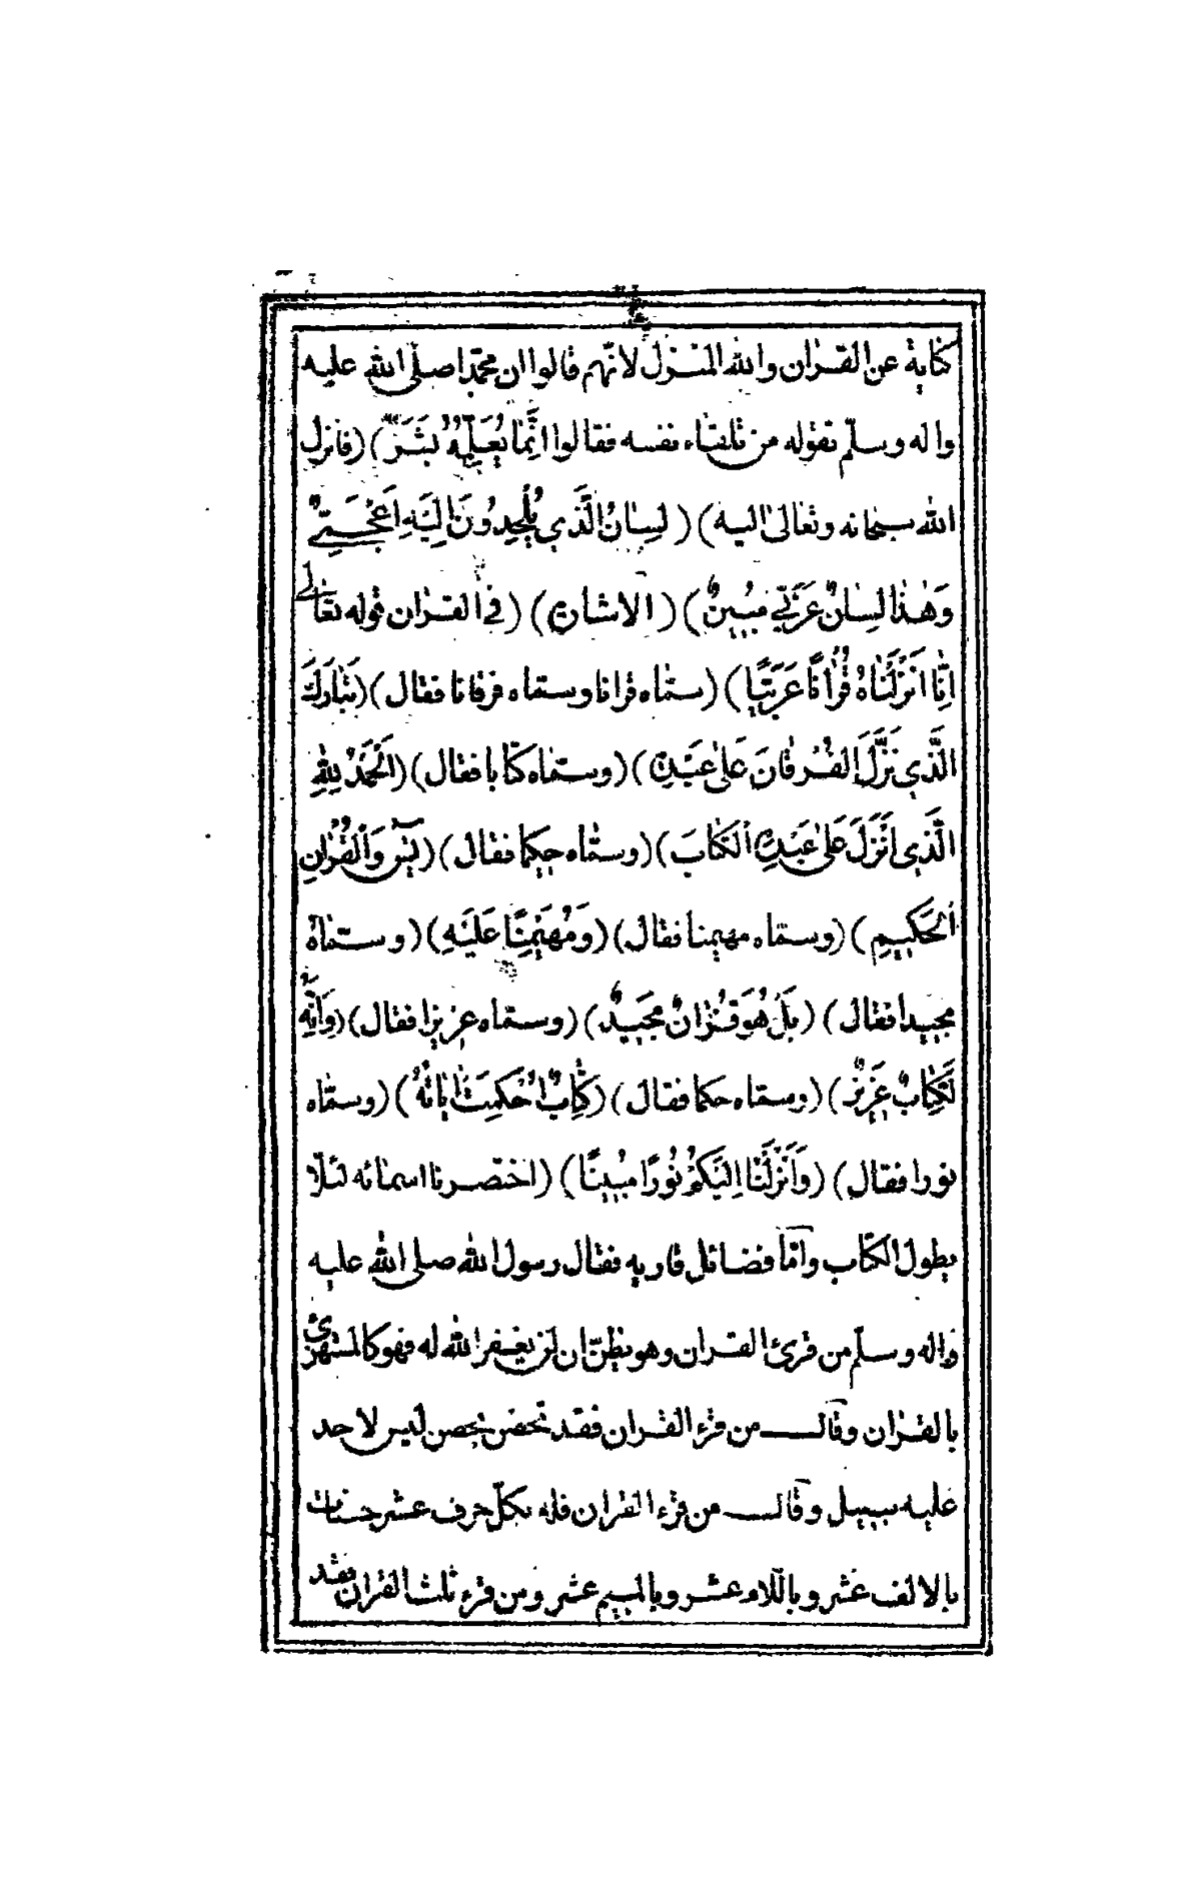 كناية عن القران والله المنزل لانّهم قالوا ان محمّدا صلى الله عليه
واله وسلّم تقوّله من تلقاء نفسه فقالوا اِنَّمٰا يُعَلِّمُهُ بَشَرٌ) (فانزل
الله سبحانه وتعالى اليه) (لِسٰانُ الَّذي يُلْحِدُونَ اِلَيْهِ اَعْجَمِيٌّ
وَهٰذٰا لِسٰانٌ عَرَبّي مُبينٌ) (الاشارة) (في القران قوله تعالى
اِنّٰا اَنْزَلْنٰاهُ قُرْاٰنًا عَرَبيًّا) (سمّاه قرانا وسمّاه فرقانا فقال) (تَبٰارَكَ
الَّذي نَزَّلَ الْفُرْقٰانَ عَلىٰ عَبْدِهِ) (وسمّاه كتابا فقال) (اَلْحَمْدُ لِلّٰهِ
الَّذي اَنْزَلَ عَلىٰ عَبْدِهِ الْكِتٰابَ) (وسمّاه حكيما فقال) (يٰسٓ وَالْقُرْاٰنِ
الْحَكيمِ) (وسمّاه مهيمنا فقال) (وَمُهَيْمِنًا عَلَيْهِ) (وسمّاه
مجيدا فقال) (بَلْ هُوَ قُرْاٰنٌ مَجيدٌ) (وسمّاه عزيزا فقال) (وَاِنَّهُ
لَكِتٰابٌ عَزيزٌ) (وسمّاه حكما فقال) (كِتٰابٌ اُحْكِمَتْ اٰيٰاتُهُ) (وسمّاه
نورا فقال) (وَاَنْزَلْنٰا اِلَيْكُمْ نُورًا مُبينًا) (اختصرنا اسمائه لئلّا
يطول الكتاب وامّا فضائل قاريه فقال رسول الله صلى الله عليه
واله وسلّم من قرئ القران وهو يظنّ ان لن يغفر الله له فهو كالمستهزئ
بالقران وقال من قرء القران فقد تحصّن بحصن ليس لاحد
عليه سبيل وقال من قرء القران فله بكلّ حرف عشر حسنات
بالالف عشر وباللام عشر وبالميم عشر ومن قرء ثلث القران فقد